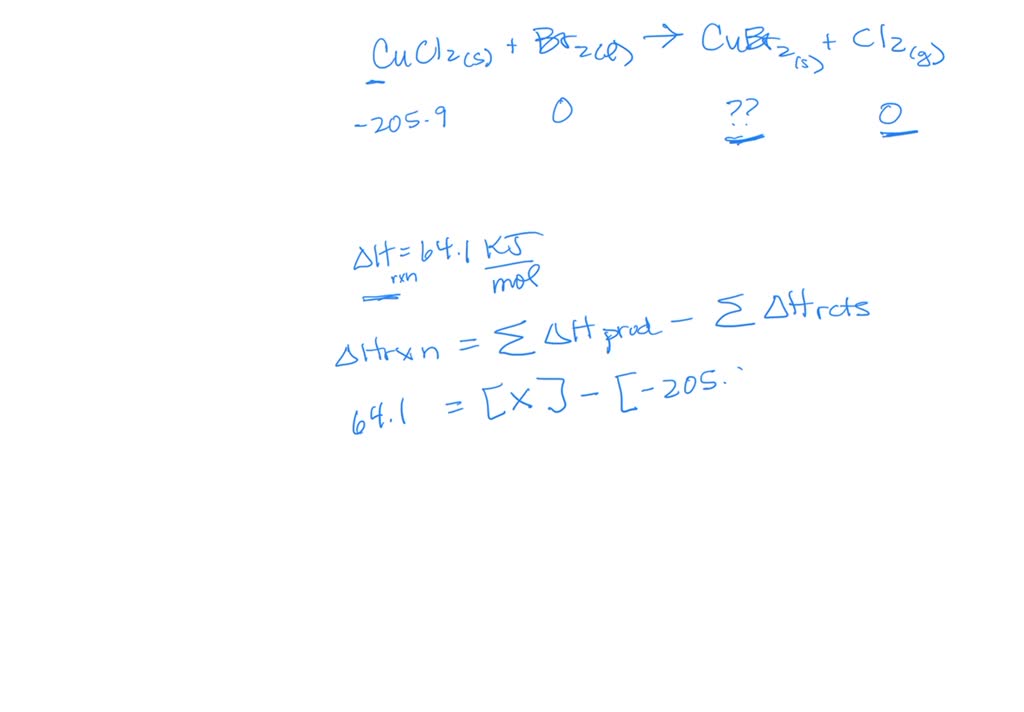 CuCl2(s) + Br2(l) → CuBr2(s) + Cl2(g)
-205.9 0 ?? 0
ΔHrxn = 64.1 KJ/mol
ΔHrxn = Σ ΔHprod - Σ ΔHrcts
64.1 = [x] - [-205.